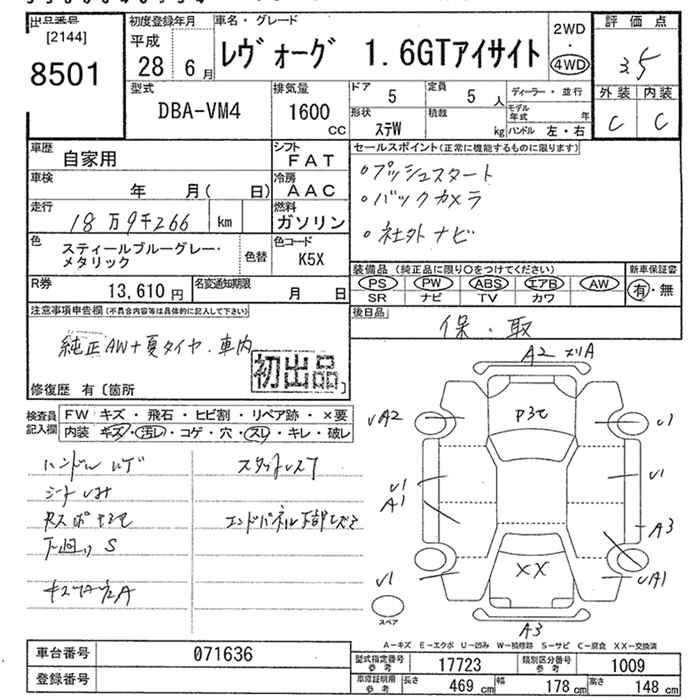 出品番号
[2144]
8501
初度登録年月
平成
28 6月
車名・グレード
レヴォーグ 1.6GTアイサイト
2WD
・
4WD
評価点
3.5
外装 内装
C C
型式
DBA-VM4
排気量
1600
CC
ドア
5
定員
5 人
ディーラー・並行
形状
ステW
積載
kg
モデル年式 年
ハンドル 左・右
車歴
自家用
シフト
FAT
車検
年 月( 日)
冷房
AAC
走行
18万9千266 km
燃料
ガソリン
色
スティールブルーグレー・
メタリック
色替
色コード
K5X
R券
13,610 円
名変通知期限
月 日
セールスポイント(正常に機能するものに限ります)
○プッシュスタート
○バックカメラ
○社外ナビ
装備品 (純正品に限り○をつけてください)
新車保証書
PS PW ABS エアB AW
有・無
SR ナビ TV カワ
後日品
保・取
注意事項申告欄(不具合内容等は具体的に記入して下さい)
純正AW+夏タイヤ・車内
初出品
修復歴 有〔箇所 〕
検査員
記入欄
FW キズ・飛石・ヒビ割・リペア跡・×要
内装 キズ・汚レ・コゲ・穴・スレ・キレ・破レ
ハンドル
シート
下廻り S
エンドパネル下部
A2
UA2
P3
U1
U1
A1
U1
A3
U1
XX
UA1
A3
スペア
A-キズ E-エクボ U-凹み W-補修跡 S-サビ C-腐食 XX-交換済
車台番号
071636
登録番号
型式指定番号
参考
17723
類別区分番号
参考
1009
車庫証明用
参考
長さ 469 cm 幅 178 cm 高さ 148 cm